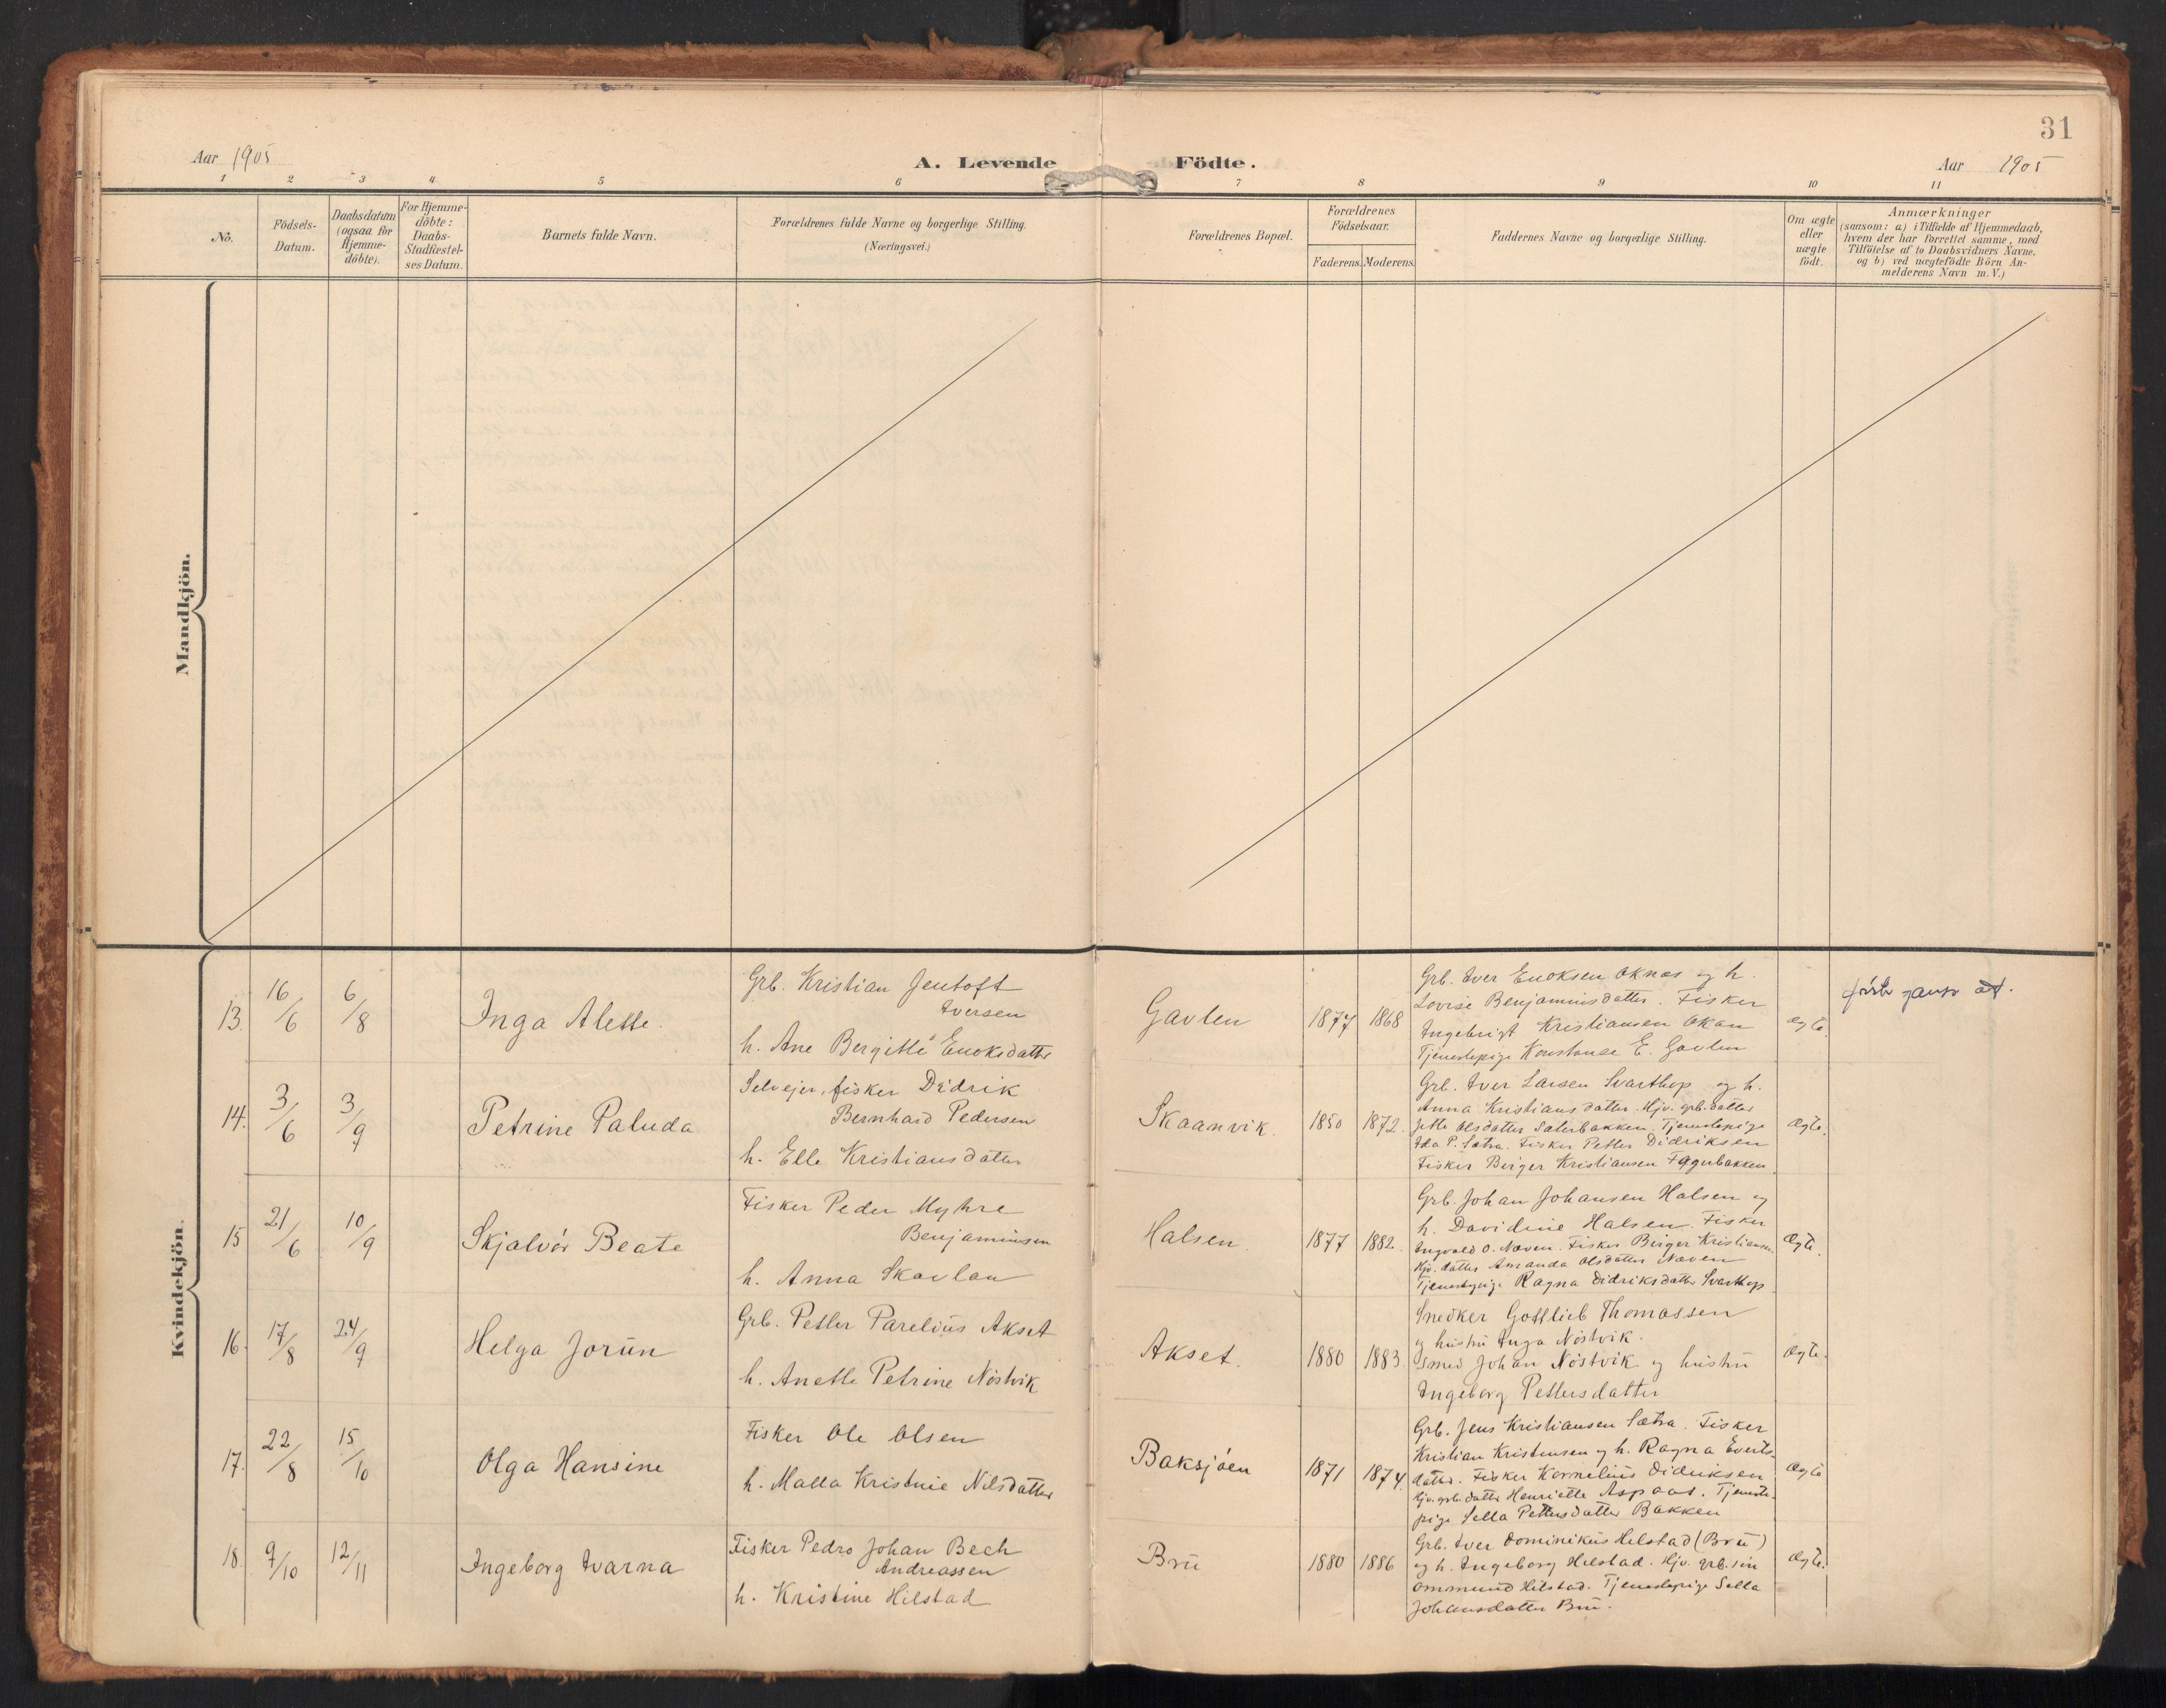 31
Aar 1905
A. Levende Födte.
Aar 1905
1 2 3 4 5 6 7 8 9 10 11
No.
Födsels-
Datum.
Daabsdatum
(ogsaa for
Hjemme-
döbte).
For Hjemme-
döbte:
Daabs-
Stadfæstel-
ses Datum.
Barnets fulde Navn.
Forældrenes fulde Navne og borgerlige Stilling.
(Næringsvei.)
Forældrenes Bopæl.
Forældrenes
Födselsaar.
Faderens. Moderens.
Faddernes Navne og borgerlige Stilling.
Om ægte
eller
uægte
födt.
Anmærkninger
(saasom: a) i Tilfælde af Hjemmedaab,
hvem der har forrettet samme, med
Tilföielse af to Daabsvidners Navne.
og b) ved uægtefödte Börn An-
melderens Navn m. V.)
Mandkjön.
Kvindekjön.
13. 16/6 6/8
Inga Alette.
Grb. Kristian Jentoft
Iversen
h. Ane Bergitte Enoksdatter
Gavlen
1877 1868
Grb. Iver Enoksen Oknes og h.
Lovise Benjaminsdatter. Fisker
Ingebrigt Kristiansen Okan
Tjenestepige Konstanse E. Gavlen
Ægte.
14. 3/6 3/9
Petrine Paluda
Selvejer, fisker Didrik
Bernhard Pedersen
h. Elle Kristiansdatter
Skaanvik.
1850 1872.
Grb. Iver Larsen Svarthop og h.
Anna Kristiansdatter. Hjv. grb. datter
Jette Olsdatter Sæterbakken. Tjenestepige
Ida P. Sætra. Fisker Petter Didriksen
Fisker Birger Kristiansen Fagerbakken
Ægte.
15 21/6 10/9
Skjalvör Beate
Fisker Peder Myhre
Benjaminsen
h. Anna Skavlan
Halsen.
1877 1882.
Grb. Johan Johansen Halsen og
h. Davidine Halsen. Fisker
Ingvald O. Næven. Fisker Birger Kristiansen
Hjv. datter Amanda Olsdatter Næven
Tjenestepige Ragna Didriksdatter Svarthop
Ægte.
16. 17/8 24/9
Helga Jorun
Grb. Petter Parelius Akset
h. Anette Petrine Nöstvik
Akset.
1880 1883.
Snedker Gottlieb Thomassen
og hustru Inga Nöstvik.
Smed Johan Nöstvik og hustru
Ingeborg Pettersdatter
Ægte.
17. 22/8 15/10
Olga Hansine
Fisker Ole Olsen
h. Malla Kristine Nilsdatter
Baksjöen
1871 1874.
Grb. Jens Kristiansen Sætra. Fisker
Kristian Kristensen og h. Ragna Everts-
datter. Fisker Kornelius Didriksen
Hjv. grb. datter Henriette Aspaas. Tjeneste-
pige Sella Pettersdatter Bakken
Ægte
18. 9/10 12/11
Ingeborg Ivarna
Fisker Pedro Johan Bech
Andreassen
h. Kristine Hilstad
Bru
1880 1886
Grb. Iver Dominikus Hilstad (Bru)
og h. Ingeborg Hilstad. Hjv. grb. sön
Ommund Hilstad. Tjenestepige Sella
Johansdatter Bru.
Ægte.